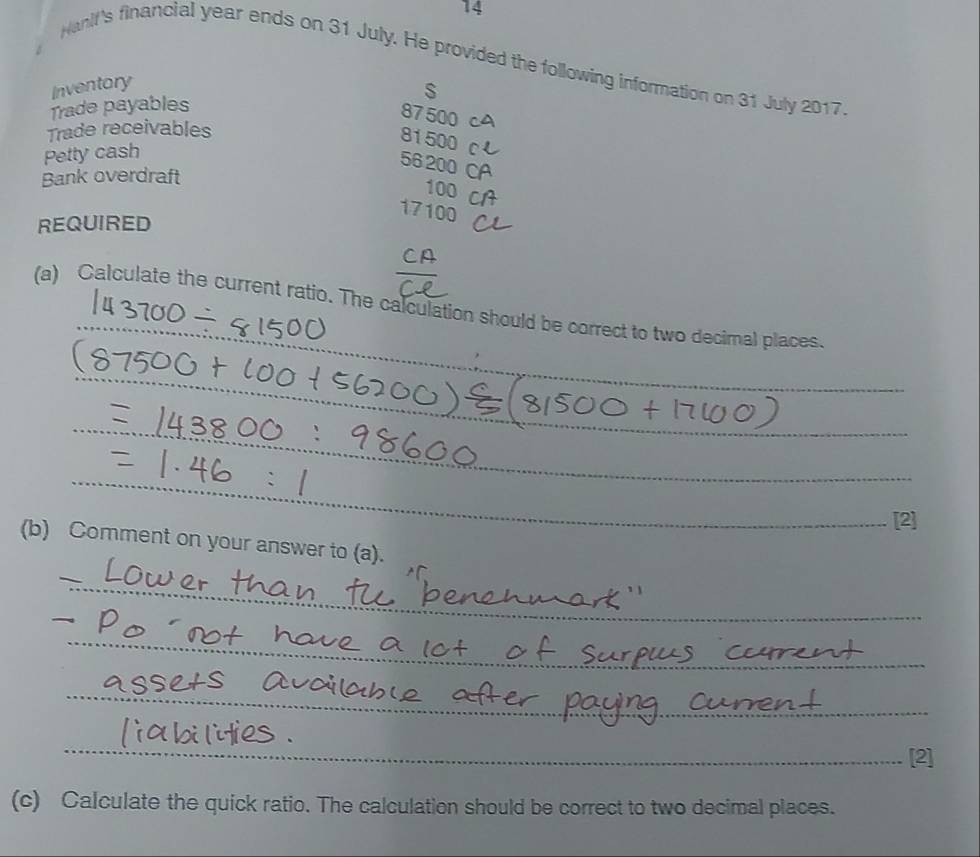 14
Hanif's financial year ends on 31 July. He provided the following information on 31 July 2017.
$
Inventory 87500 CA
Trade payables 81500 CL
Trade receivables 56200 CA
Petty cash 100 CA
Bank overdraft 17100 CL
REQUIRED
CA
CL
(a) Calculate the current ratio. The calculation should be correct to two decimal places.
143700 ÷ 81500
(87500 + 100 + 56200) : (81500 + 17100)
= 143800 : 98600
= 1.46 : 1
[2]
(b) Comment on your answer to (a).
- Lower than the "benchmark"
- Do not have a lot of surplus current
assets available after paying current
liabilities.
[2]
(c) Calculate the quick ratio. The calculation should be correct to two decimal places.